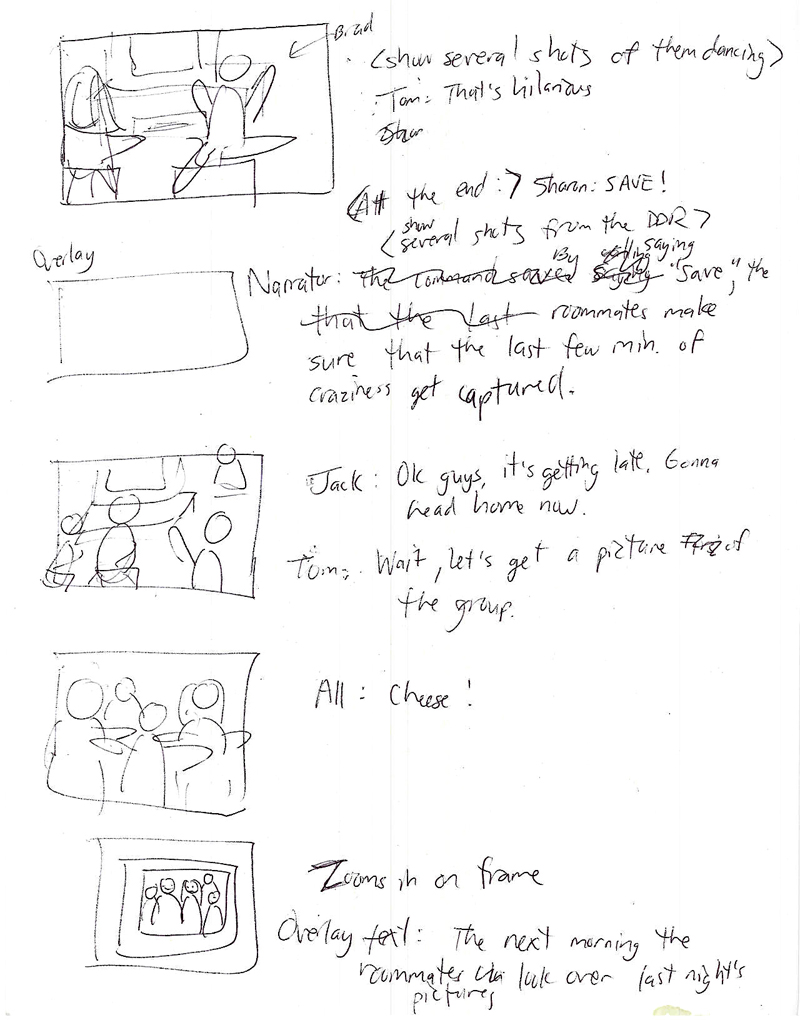 Brad
<show several shots of them dancing>
Tom: That's hilarious
Shar
<At the end:> Sharon: SAVE!
<show several shots from the DDR>
Overlay
Narrator: The command saved By saying "Save," the
that the last roommates make
sure that the last few min. of
craziness get captured.
Jack: Ok guys, it's getting late. Gonna
head home now.
Tom: Wait, let's get a picture of
the group.
All: Cheese!
Zooms in on frame
Overlay text: The next morning the
roommates look over last night's
pictures